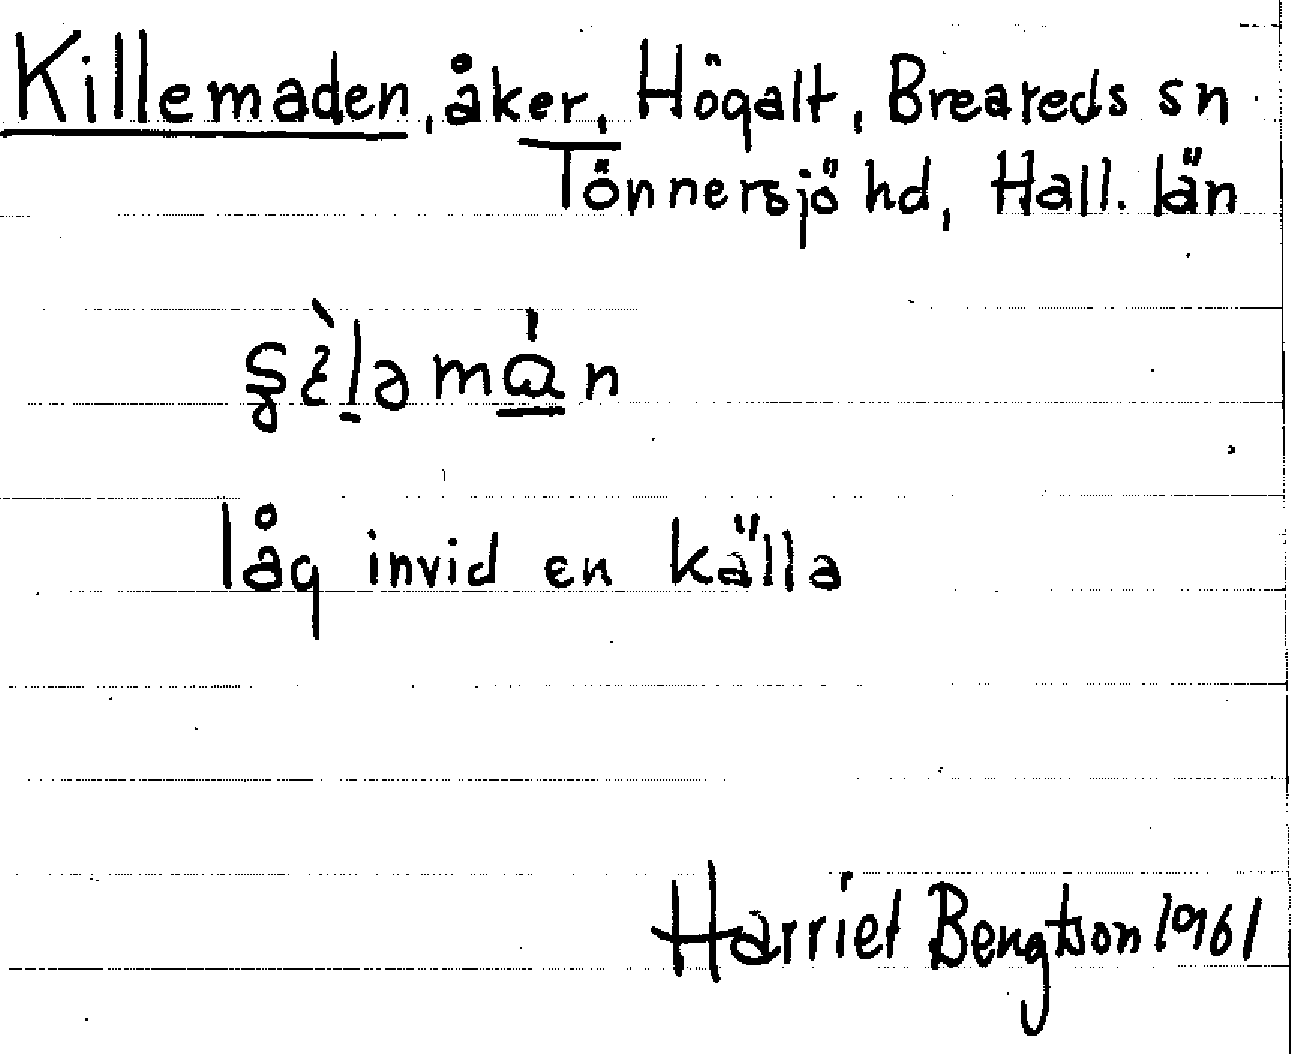 Killemaden, åker, Högalt, Breareds sn
Tönnersjö hd, Hall. län
låg invid en källa
Harriet Bengtson 1961